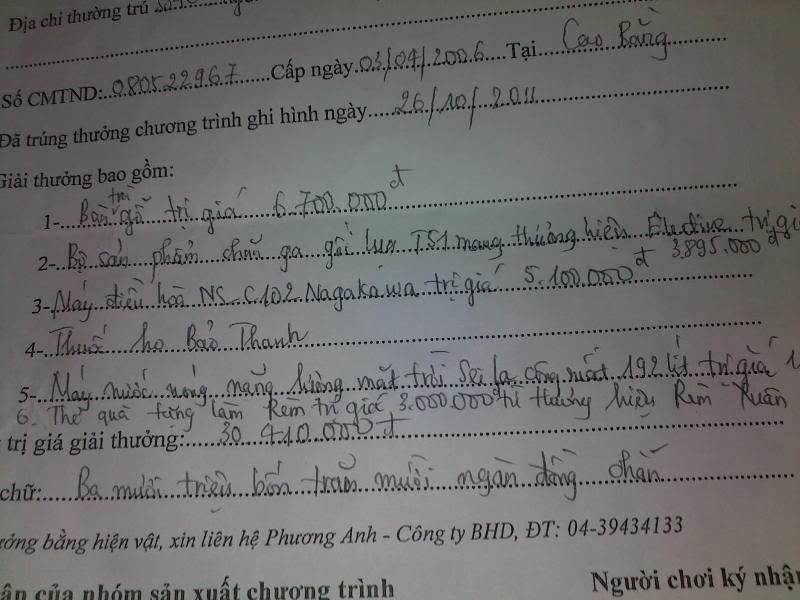 Địa chỉ thường trú
Số CMTND:..080522967......Cấp ngày.03/04/.2006....Tại....Cao Bằng
Đã trúng thưởng chương trình ghi hình ngày.....26/10/.2011
Giải thưởng bao gồm:
1-...Bàn trà gỗ trị giá 6.700.000đ
2-..Bộ sản phẩm chăn ga gối lụa TS1 mang thương hiệu Elective trị giá
3.895.000đ
3-Máy điều hoà NS-C102 Nagakawa trị giá 5.100.000đ
4-.Thuốc ho Bảo Thanh
5-..Máy nước nóng năng lượng mặt trời Sơn Hà công suất 192 lít trị giá 1
6. Thẻ quà tặng làm Rèm trị giá 3.000.000đ từ thương hiệu Rèm Xuân
trị giá giải thưởng:......30.410.000đ
chữ:.....Ba mươi triệu bốn trăm mười ngàn đồng chẵn
ưởng bằng hiện vật, xin liên hệ Phương Anh - Công ty BHD, ĐT: 04-39434133
ận của nhóm sản xuất chương trình
Người chơi ký nhận